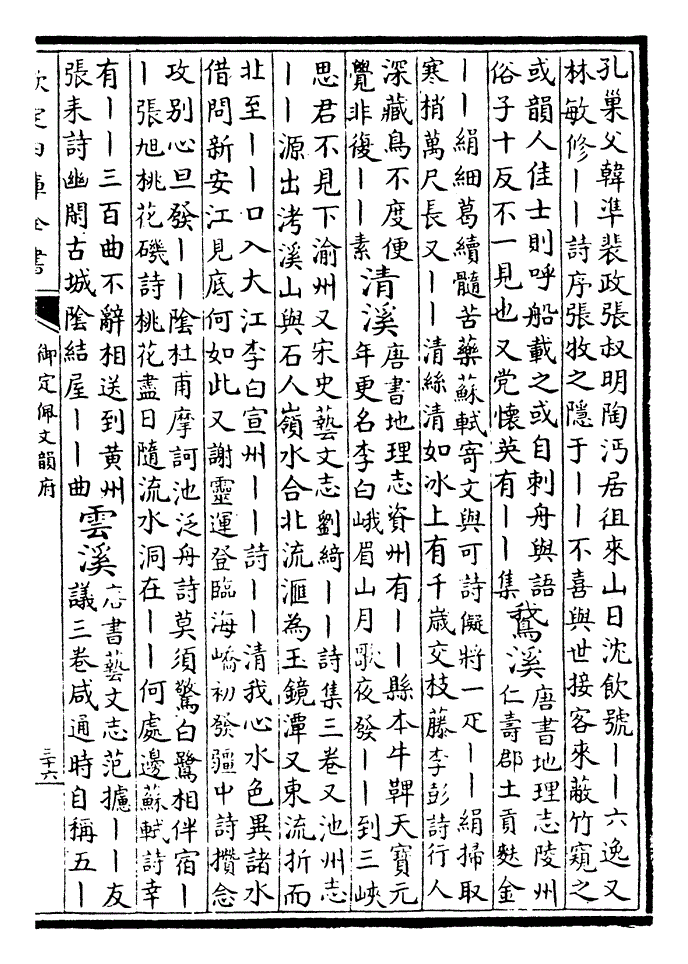 孔巢父韓準裴政張叔明陶沔居徂來山日沈飲號｜｜六逸又
林敏修｜｜詩序張牧之隱于｜｜不喜與世接客來蔽竹窺之
或韻人佳士則呼船載之或自刺舟與語
俗子十反不一見也又党懷英有｜｜集
鵞溪
唐書地理志陵州
仁壽郡土貢麩金
｜｜絹細葛續髓苦藥蘇軾寄文與可詩儗將一疋｜｜絹掃取
寒梢萬尺長又｜｜清絲清如冰上有千歲交枝藤李彭詩行人
深藏鳥不度便
覺非復｜｜素
清溪
唐書地理志資州有｜｜縣本牛鞞天寶元
年更名李白峨眉山月歌夜發｜｜到三峽
思君不見下渝州又宋史藝文志劉綺｜｜詩集三卷又池州志
｜｜源出洘溪山與石人嶺水合北流滙為玉鏡潭又東流折而
北至｜｜口入大江李白宣州｜｜詩｜｜清我心水色異諸水
借問新安江見底何如此又謝靈運登臨海嶠初發疆中詩攢念
攻别心旦發｜｜陰杜甫摩訶池泛舟詩莫須驚白鷺相伴宿｜
｜張旭桃花磯詩桃花盡日隨流水洞在｜｜何處邊蘇軾詩幸
有｜｜三百曲不辭相送到黄州
張耒詩幽閑古城陰結屋｜｜曲
雲溪
唐書藝文志范攄｜｜友
議三卷咸通時自稱五｜
欽定四庫全書
御定佩文韻府
三十六